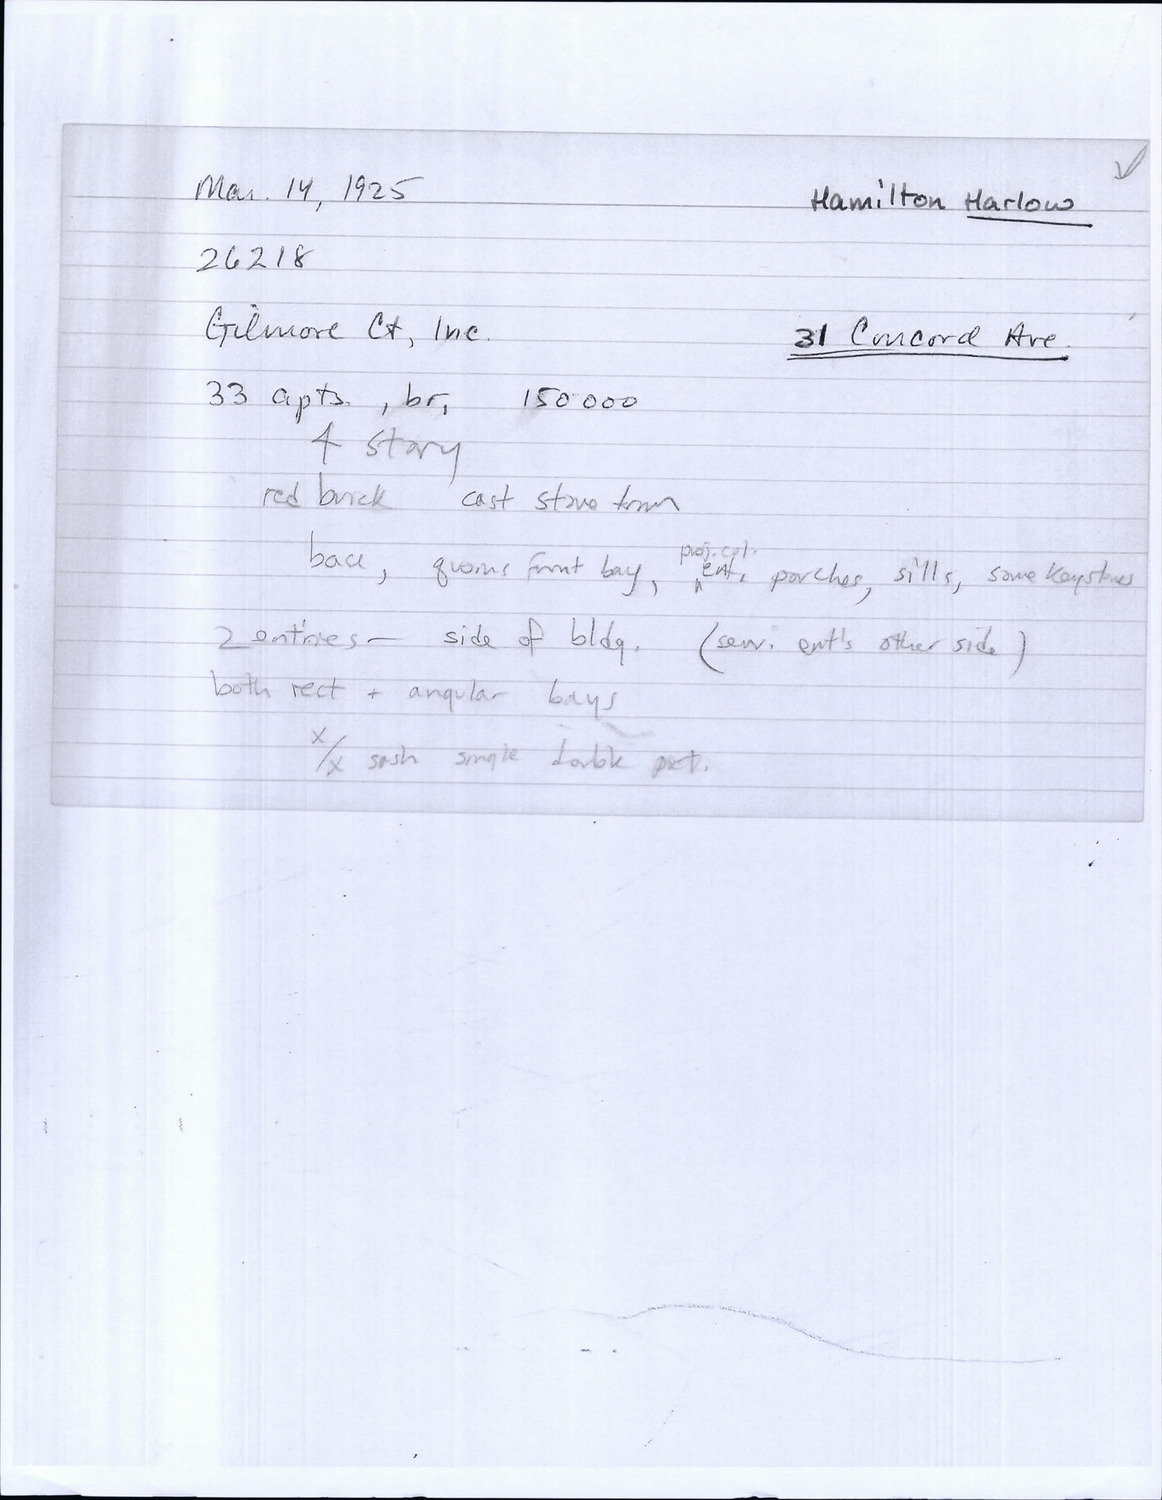 Mar. 14, 1925
Hamilton Harlow
26218
Gilmore Ct, Inc.
31 Concord Ave.
33 apts., br, 150 000
4 story
red brick cast stone trim
proj. col.
base, quoins front bay, ent. porches, sills, some keystones
2 entries — side of bldg. (serv. ent's other side)
both rect + angular bays
x/x sash single double